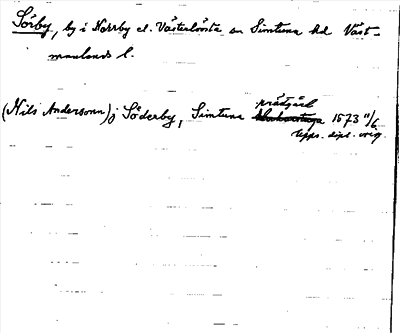 Sörby, by i Norrby el. Västerlövsta sn Simtuna hd Väst-
manlands l.
prästgård
(Nils Andersson) i Söderby, Simtuna 1573 11/6
Upps. dipl. orig.